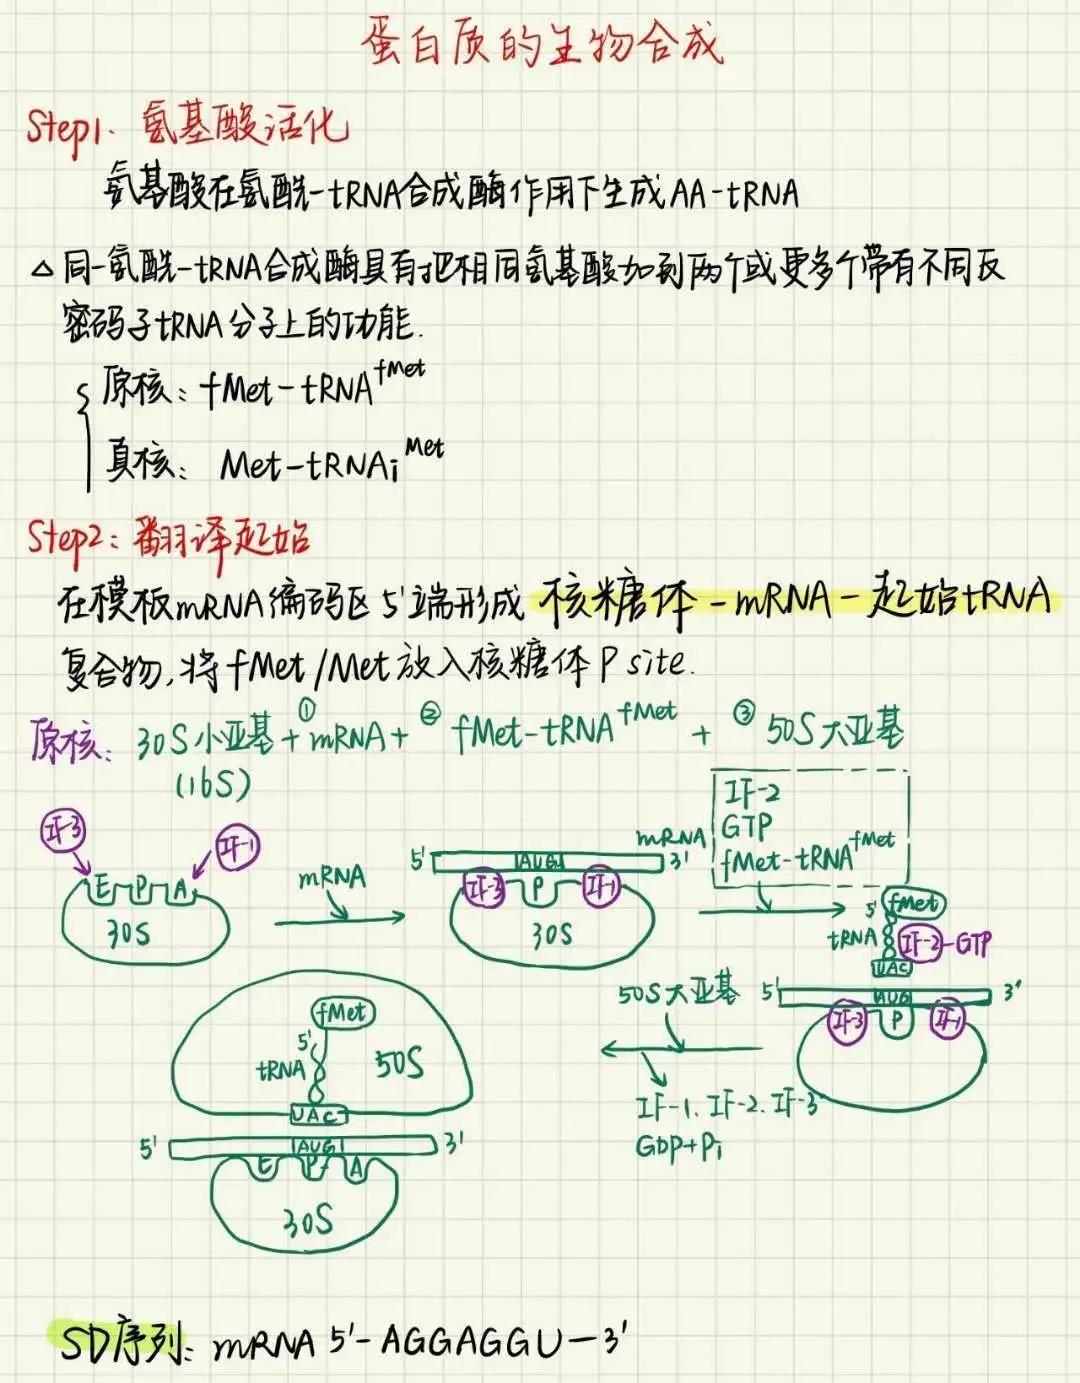 蛋白质的生物合成
Step1. 氨基酸活化
氨基酸在氨酰-tRNA合成酶作用下生成AA-tRNA
△ 同一氨酰-tRNA合成酶具有把相同氨基酸加到两个或更多个带有不同反
密码子tRNA分子上的功能.
原核: fMet-tRNA^fMet
真核: Met-tRNAi^Met
Step2: 翻译起始
在模板mRNA编码区5'端形成核糖体-mRNA-起始tRNA
复合物,将fMet/Met放入核糖体P site.
原核: 30S小亚基+①mRNA+②fMet-tRNA^fMet+③50S大亚基
(16S)
IF-3
IF-1
E P A
30S
mRNA
mRNA
5' AUG 3'
IF-3 P IF-1
30S
IF-2
GTP
fMet-tRNA^fMet
5' fMet
tRNA IF-2-GTP
UAC
5' AUG 3'
IF-3 P IF-1
50S大亚基
IF-1. IF-2. IF-3
GDP+Pi
fMet
5'
tRNA 50S
UAC
5' AUG 3'
E P A
30S
SD序列: mRNA 5'-AGGAGGU-3'